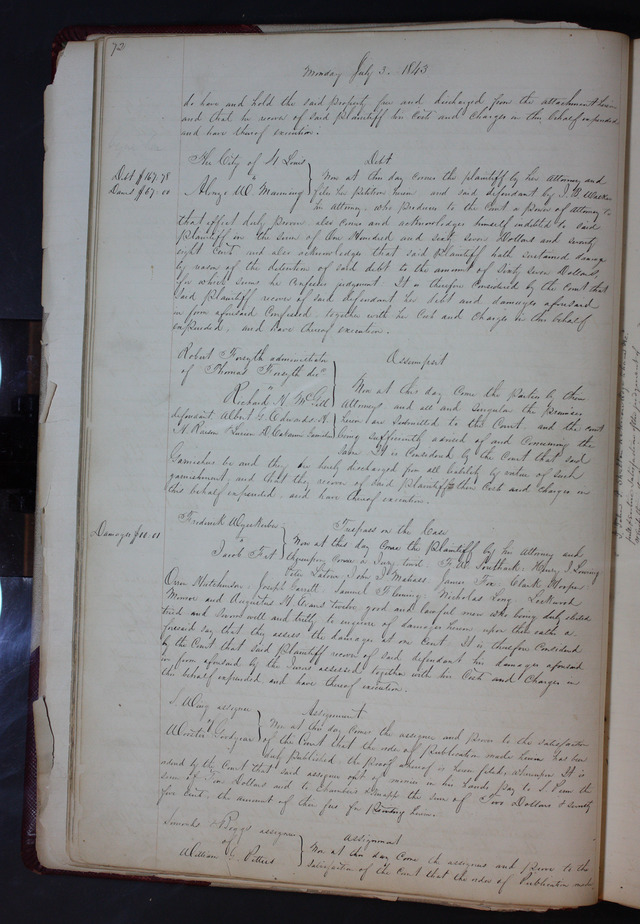 72
Monday July 3. 1843
do have and hold the said property free and discharged from the attachment herein
and that he recover of said Plaintiff his Cost and Charges in this behalf expended
and have thereof execution.
The City of St Louis } Debt
Debt $167.78
Dam $67.00
Alonzo W. Manning
Now at this day comes the plaintiff by her Attorney and
files her petition herein and said defendant by
his attorney, who produces to the Court a power of attorney to
that effect duly proven also comes and acknowledges himself indebted to said
Plaintiff in the sum of One Hundred and sixty seven Dollars and seventy
eight Cents and also acknowledges that said Plaintiff hath sustained damage
by reason of the detention of said debt to the amount of Sixty seven Dollars,
for which sums he confesses judgment. It is therefore Considered by the Court that
said Plaintiff recover of said defendant her debt and damages aforesaid
in form aforesaid Confessed, together with her Cost and Charges in this behalf
expended, and have thereof execution.
Robert Forsyth administrator
of Thomas Forsyth decd } Assumpsit
vs
Richard H. McGill
defendant, Albert G. Edwards
Now at this day Come the parties by their
Attorneys and all and singular the premises
herein are submitted to the Court, and the court
being sufficiently advised of and Concerning the
same It is Considered by the Court that said
Garnishees be and they are hereby discharged from all liability by virtue of such
garnishment, and that they recover of said Plaintiff their Cost and charges in
this behalf expended and have thereof execution.
Frederick } Trespass on the Case
Damages $00.01
vs
Jacob
Now at this day Comes the Plaintiff by his Attorney and
thereupon Comes a Jury
Peter John James Fox, Clark Hooper,
Orrin Hutchinson, Joseph Jarrell, Samuel Fleming, Nicholas Long, Lockwood
Monroe and Augustus H. Evans twelve good and lawful men who being duly elected
tried and sworn well and truly to enquire of damages herein upon their oaths a
foresaid say that they assess the damages at one Cent. It is therefore Considered
by the Court that said Plaintiff recover of said defendant his damages aforesaid
in form aforesaid by the Jurors assessed together with his Cost and Charges in
this behalf expended and have thereof execution.
S. Wing assignee } Assignment
of
Webster Goodyear
Now at this day Comes the assignee and proves to the satisfaction
of the Court that the order of Publication made herein has been
duly published, the proof whereof is herein filed: whereupon It is
ordered by the Court that said assignee out of monies in his hands pay to
sum of Two Dollars and to Chambers & Knapp the sum of Two Dollars & seventy
five Cents, the amount of their fees for Printing herein.
Simonds & Boggs assignees } Assignment
of
William G. Pettus
Now at this day Come the assignees and prove to the
satisfaction of the Court that the order of Publication made